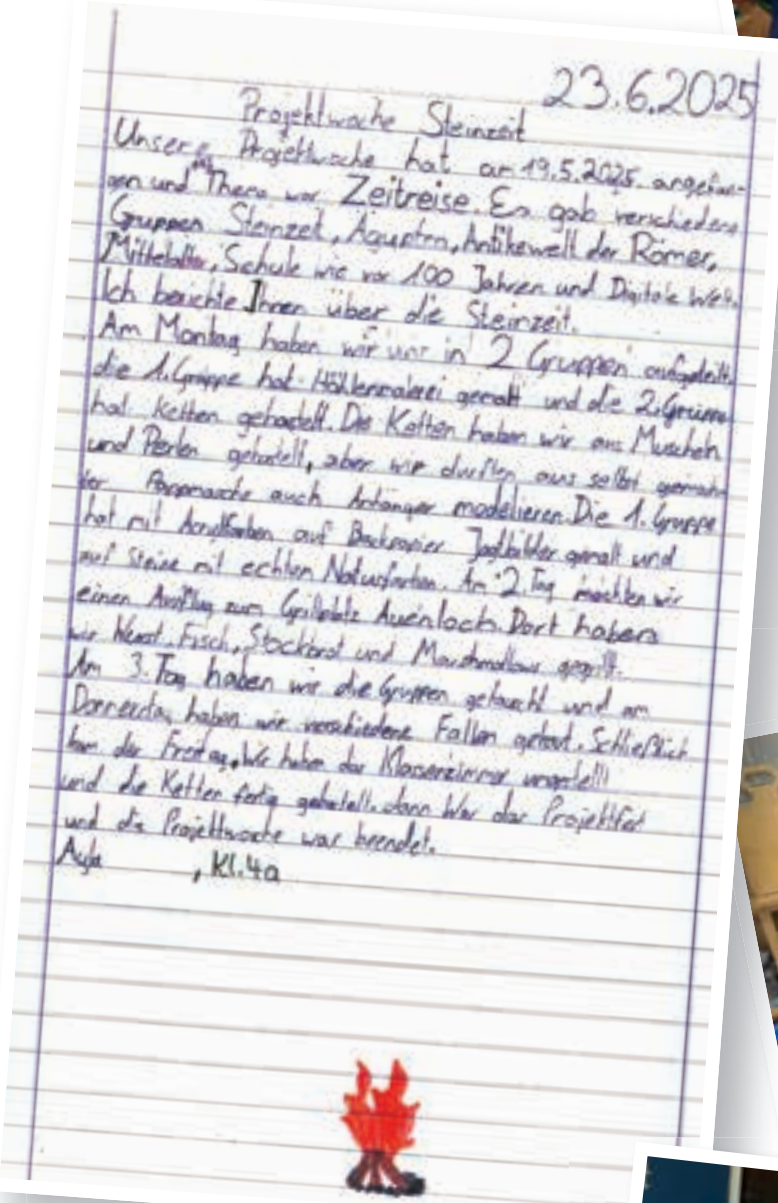 23.6.2025
Projektwoche Steinzeit
Unsere Projektwoche hat am 19.5.2025. angefan-
gen und das Thema war Zeitreise. Es gab verschiedene
Gruppen Steinzeit, Ägypten, Antikewelt der Römer,
Mittelalter, Schule wie vor 100 Jahren und Digitale Welt.
Ich berichte Ihnen über die Steinzeit.
Am Montag haben wir uns in 2 Gruppen aufgeteilt
die 1. Gruppe hat Höhlenmalerei gemalt und die 2. Gruppe
hat Ketten gebastelt. Die Ketten haben wir aus Muscheln
und Perlen gebastelt, aber wir durften aus selbst gemach-
ter Pappmasche auch Anhänger modelieren. Die 1. Gruppe
hat mit Acrylfarben auf Backpapier Jagdbilder gemalt und
auf Steine mit echten Naturfarben. Am 2. Tag machten wir
einen Ausflug zum Grillplatz Auenloch. Dort haben
wir Wurst, Fisch, Stockbrot und Marshmallows gegrillt.
Am 3. Tag haben wir die Gruppen getauscht und am
Donnerstag haben wir verschiedene Fallen gebaut. Schließlich
kam der Freitag. Wir haben das Klassenzimmer umgestellt
und die Ketten fertig gebastelt. dann War das Projektfest
und die Projektwoche war beendet.
Ayla , Kl. 4a